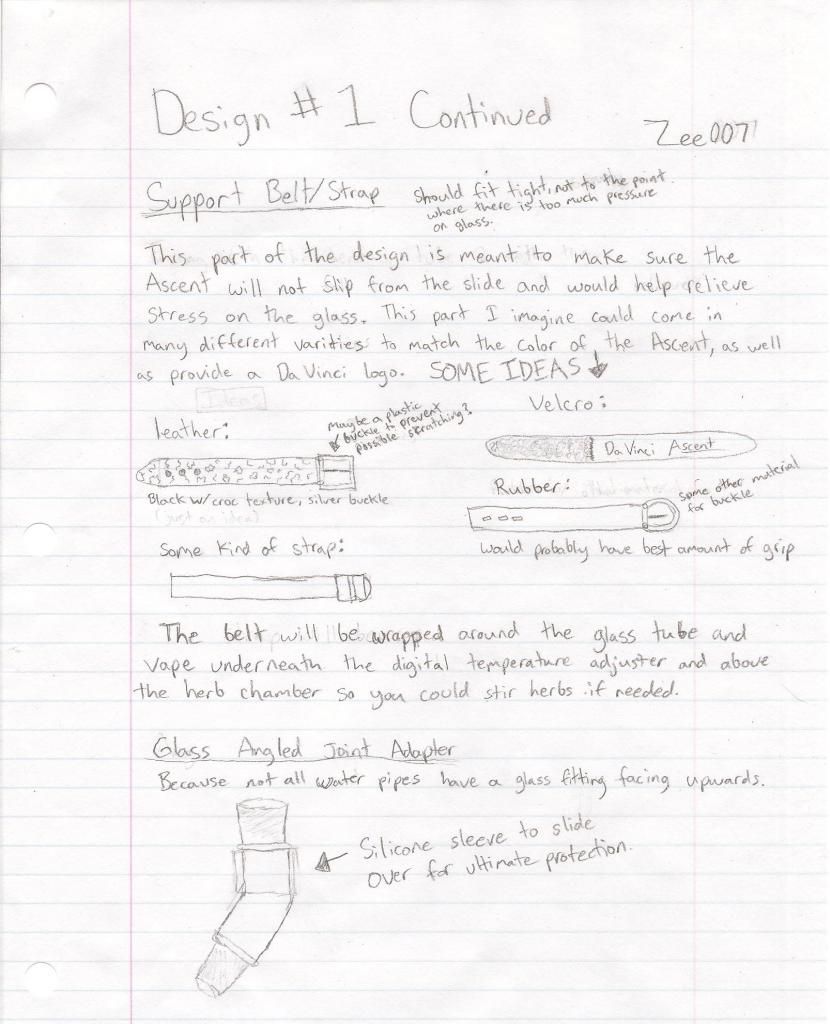 Design #1 Continued
Zee007
Support Belt/Strap
Should fit tight, not to the point
where there is too much pressure
on glass.
This part of the design is meant to make sure the
Ascent will not slip from the slide and would help relieve
stress on the glass. This part I imagine could come in
many different varities to match the color of the Ascent, as well
as provide a DaVinci logo. SOME IDEAS
Ideas
leather:
maybe a plastic
buckle to prevent
possible skratching?
Black w/croc texture, silver buckle
(just an idea)
Velcro:
DaVinci Ascent
Rubber:
some other material
for buckle
would probably have best amount of grip
Some kind of strap:
The belt will be wrapped around the glass tube and
vape underneath the digital temperature adjuster and above
the herb chamber so you could stir herbs if needed.
Glass Angled Joint Adapter
Because not all water pipes have a glass fitting facing upwards.
Silicone sleeve to slide
over for ultimate protection.